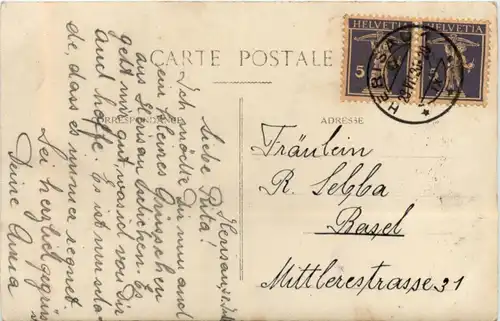 CARTE POSTALE
CORRESPONDANCE
ADRESSE
HELVETIA
5
HELVETIA
5
HERISAU
Herisau, 2. Juli
Liebe Rita!
Ich möchte Dir nun auch
ein kleines Grüsschen
aus Herisau schicken. Es
geht mir gut was ich von Dir
auch hoffe. Es ist nur scha-
de, dass es immer regnet
Sei herzlich gegrüsst
Deine Anna
Fräulein
R. Selba
Basel
Mittlerestrasse 31